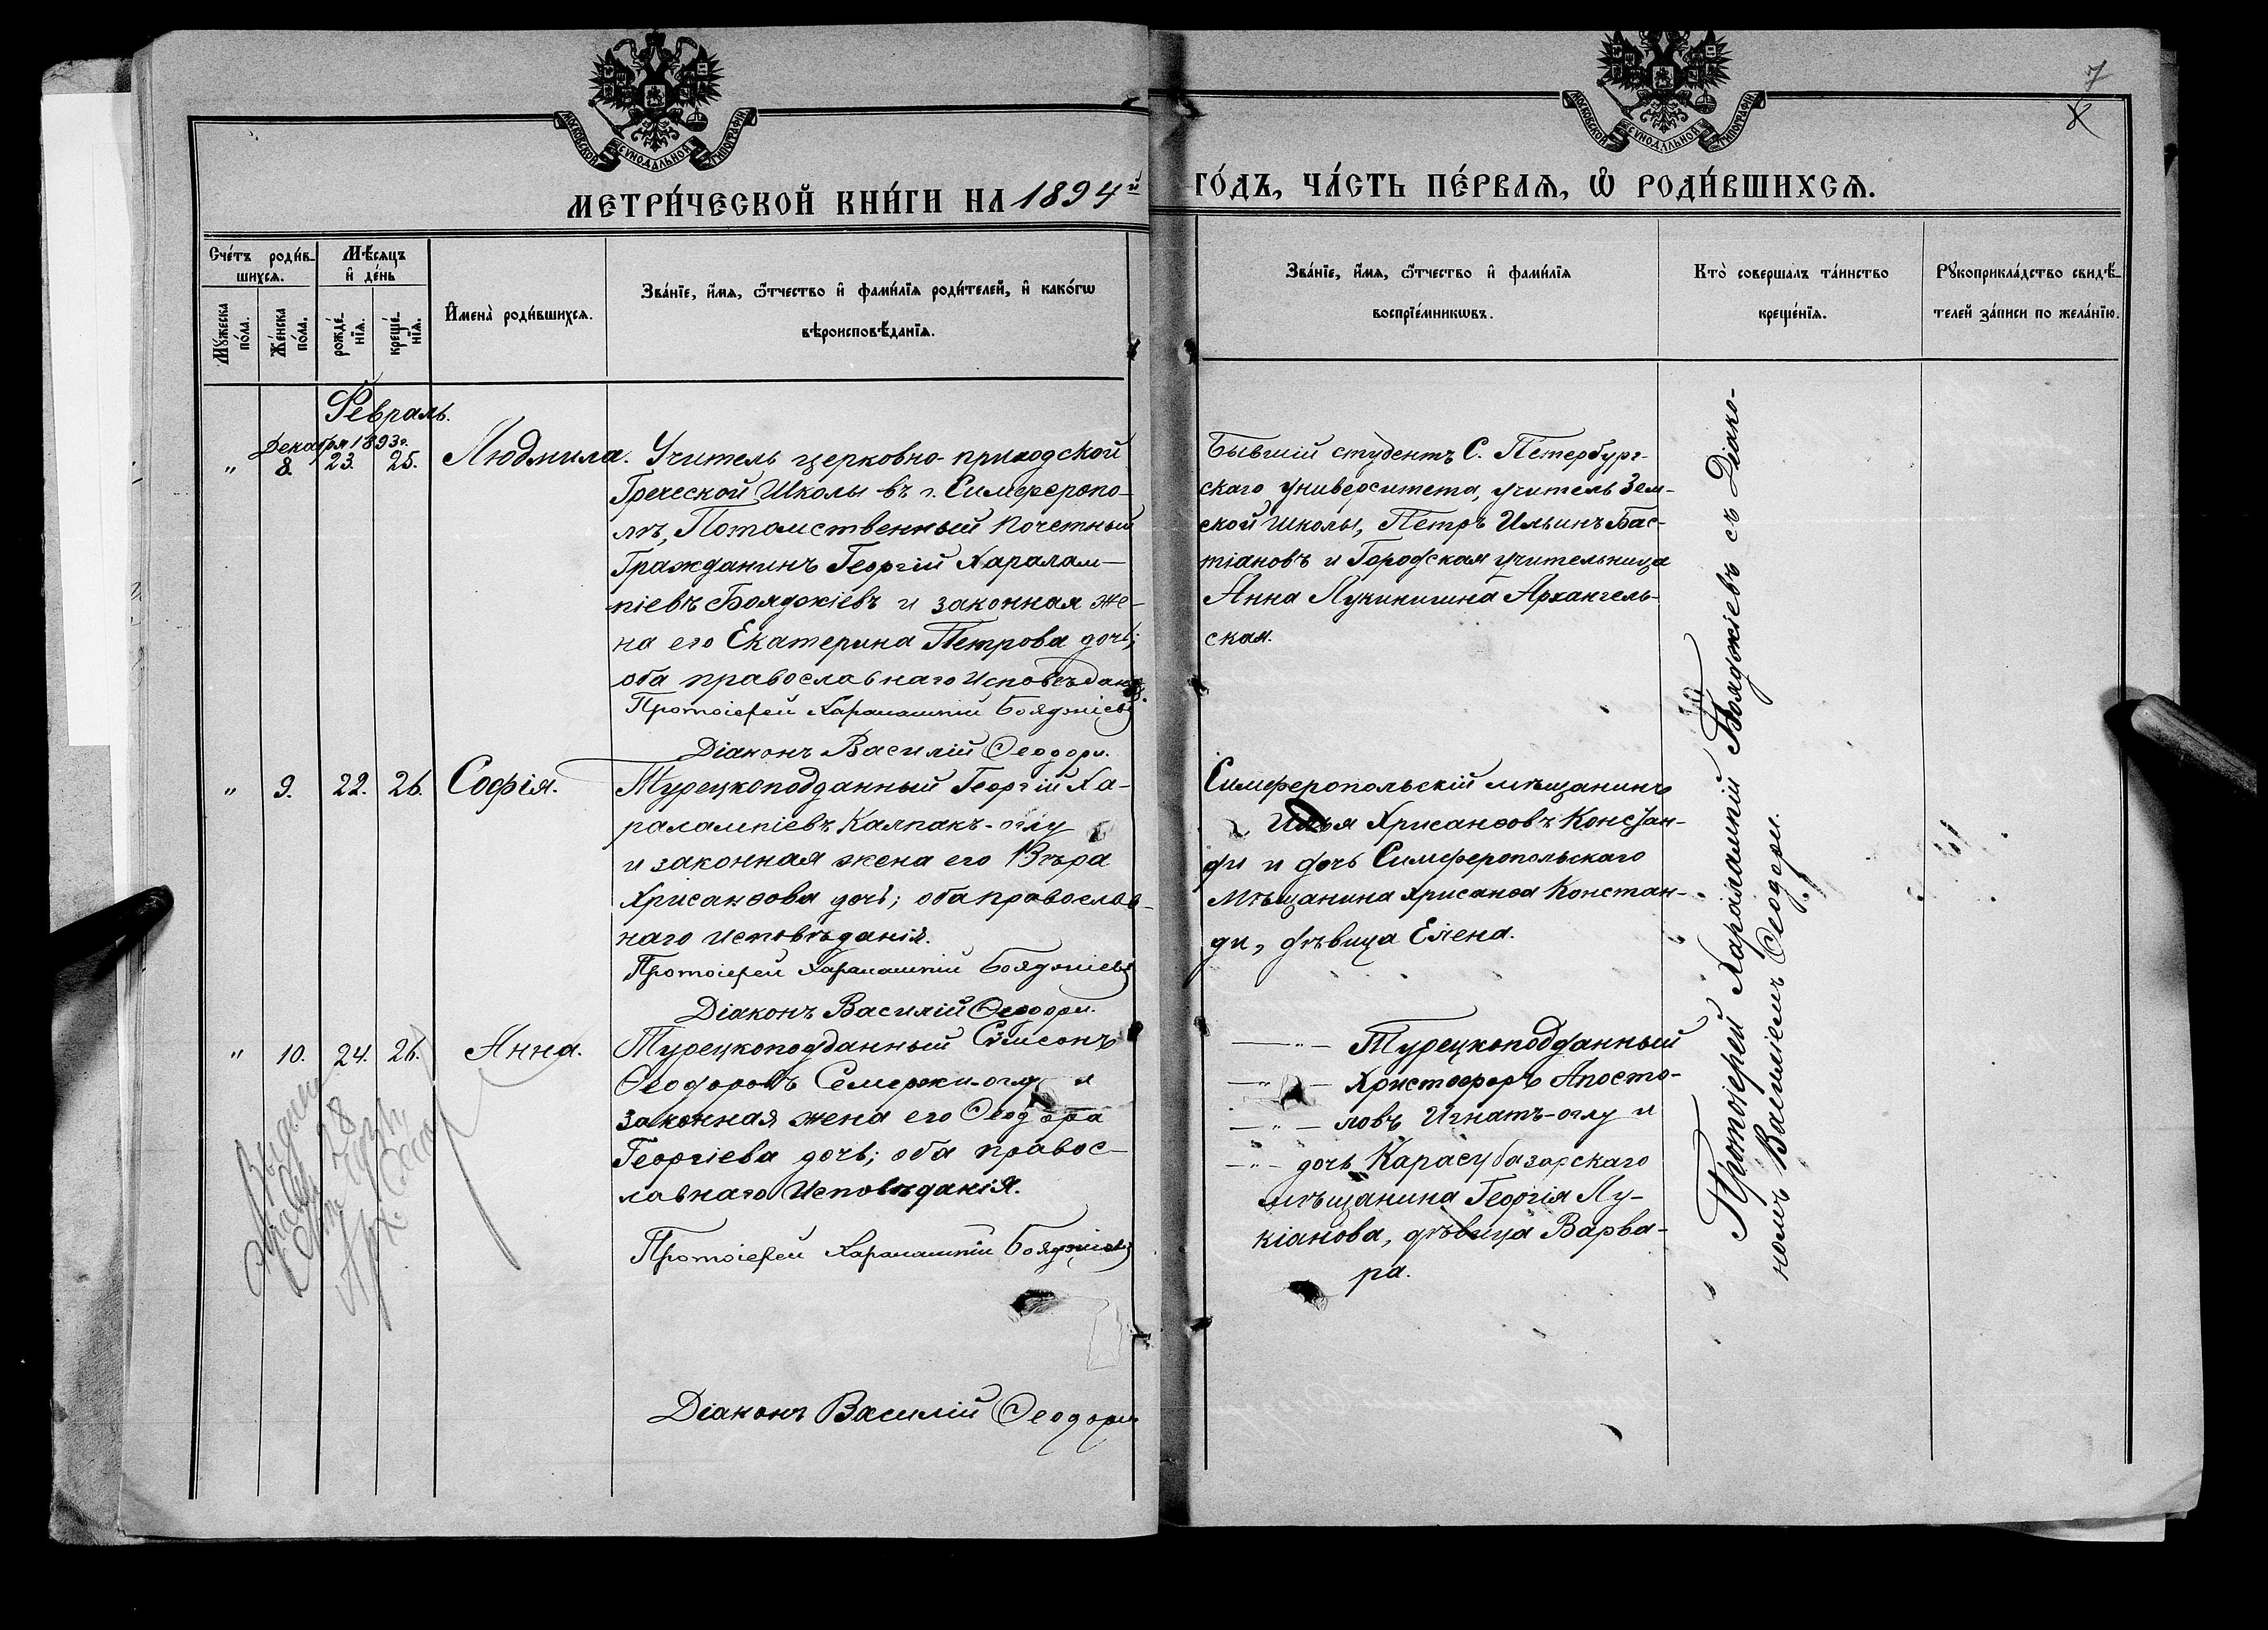 МОСКОВСКОЙ СУНОДАЛЬНОЙ ТИПОГРАФІИ
МОСКОВСКОЙ СУНОДАЛЬНОЙ ТИПОГРАФІИ
7
8
МЕТРИ́ЧЕСКОЙ КНИ́ГИ НА 1894й ГО́ДЪ, ЧА́СТЬ ПЕ́РВАѦ, Ѡ҆ РОДИ́ВШИХСѦ.
Сче́тъ роди́в-
шихсѧ.
Мꙋ́жеска
по́ла.
Же́нска
по́ла.
Мѣ́сѧцъ
и҆ де́нь
рожде́-
нїѧ.
креще́-
нїѧ.
И҆мена̀ роди́вшихсѧ.
Зва́нїе, и҆́мѧ, ѻ҆́тчество и҆ фами́лїѧ роди́телей, и҆ како́гѡ
вѣроисповѣ́данїѧ.
Зва́нїе, и҆́мѧ, ѻ҆́тчество и҆ фами́лїѧ
воспрїе́мникѡвъ.
Кто̀ совершалъ та́инство
креще́нїѧ.
Рꙋкоприкла́дство свидѣ́-
телей за́писи по жела́нїю.
Февраль.
Декабря 1893г.
" 8. 23. 25. Людмила.
Учитель церковно-приходской
Греческой Школы въ г. Симферопо-
лѣ, Потомственный Почетный
Гражданинъ Георгій Харалам-
піевъ Бояджіевъ и законная же-
на его Екатерина Петрова дочь;
оба православнаго Исповѣданія.
Протоіерей Харалампій Бояджіевъ
Діаконъ Василій Ѳеодори.
Бывшій студентъ С. Петербург-
скаго университета, учитель Зем-
ской Школы, Петръ Ильинъ Бас-
тіановъ и Городская учительница
Анна Лукинишна Архангель-
ская.
" 9. 22. 26. Софія.
Турецкоподданный Георгій Ха-
ралампіевъ Калпакъ-оглу
и законная жена его Вѣра
Хрисанѳова дочь; оба православ-
наго исповѣданія.
Протоіерей Харалампій Бояджіевъ
Діаконъ Василій Ѳеодори.
Симферопольскій мѣщанинъ
Илья Хрисанѳовъ Констан-
ди и дочь Симферопольскаго
Мѣщанина Хрисанѳа Констан-
ди, дѣвица Елена.
" 10. 24. 26. Анна.
Турецкоподданный Симсонъ
Ѳеодоровъ Семержи-оглу и
законная жена его Ѳеодора
Георгіева дочь; оба правос-
лавнаго Исповѣданія.
Протоіерей Харалампій Бояджіевъ
Діаконъ Василій Ѳеодори
— " — Турецкоподданный
— " — Христофоръ Апосто-
— " — ловъ Игнатъ-оглу и
— " — дочь Карасубазарскаго
мѣщанина Георгія Лу-
кіанова, дѣвица Варва-
ра.
Протоіерей Харалампій Бояджіевъ съ Діако-
номъ Василіемъ Ѳеодори.